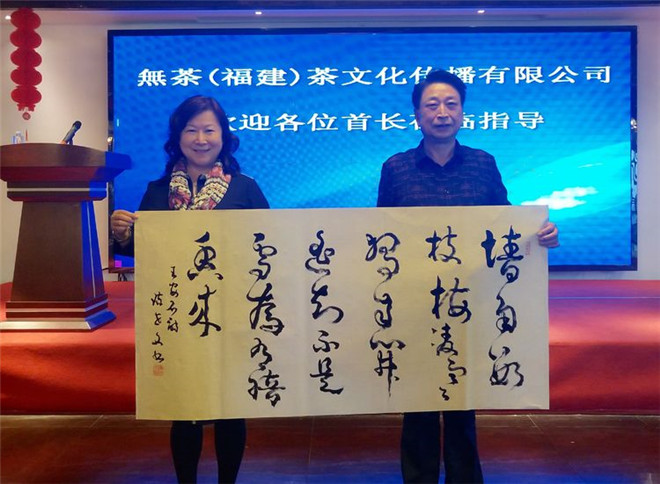 無茶(福建)茶文化传播有限公司
欢迎各位首长莅临指导
墙角数
枝梅凌寒
独自开
遥知不是
雪為有暗
香来
王安石诗